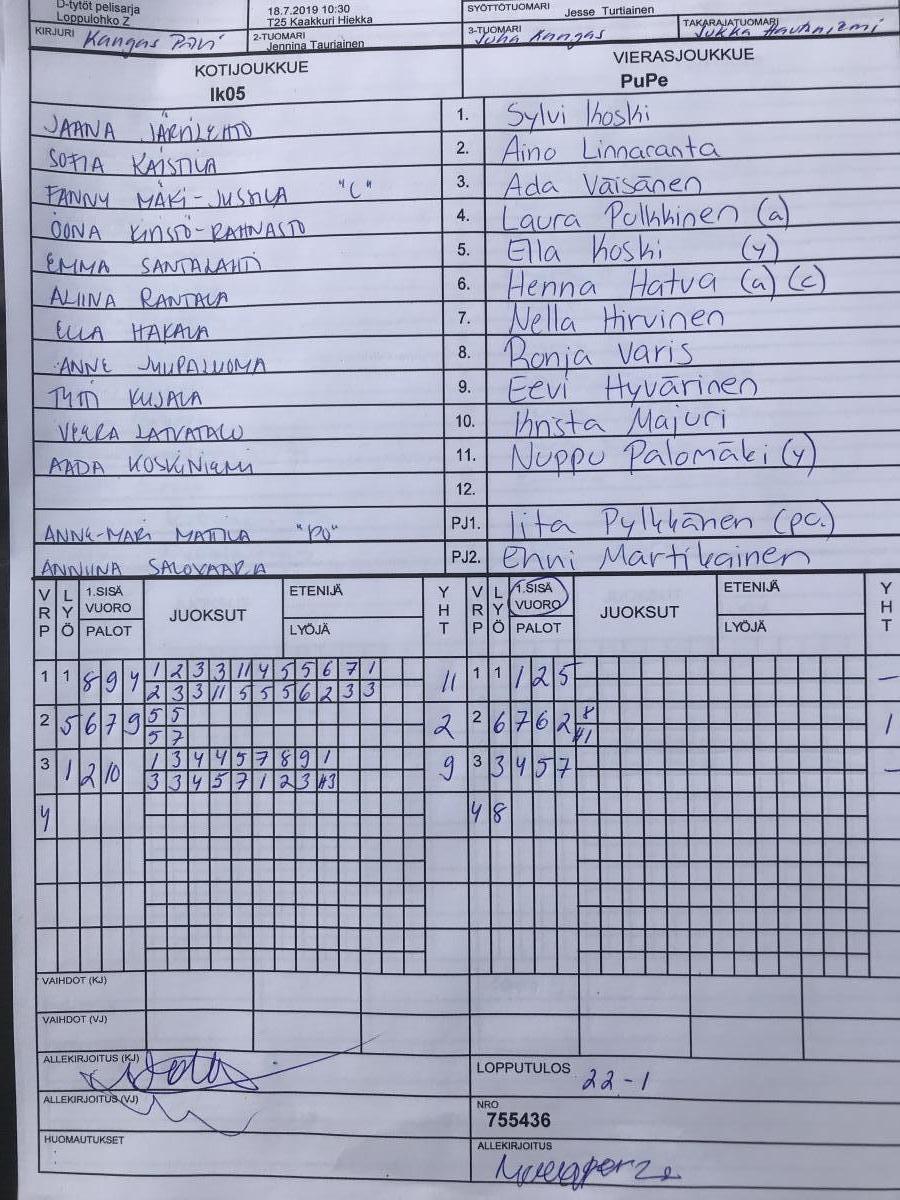 D-tytöt pelisarja
Loppulohko Z
18.7.2019 10:30
T25 Kaakkuri Hiekka
SYÖTTÖTUOMARI Jesse Turtiainen
KIRJURI Kangas Pävi
2-TUOMARI
Jennina Tauriainen
3-TUOMARI
Juha Kangas
TAKARAJATUOMARI
Jukka
KOTIJOUKKUE
Ik05
VIERASJOUKKUE
PuPe
JAANA JÄRVILEHTO 1. Sylvi Koski
SOFIA KAISTILA 2. Aino Linnaranta
FANNY MÄKI-JUSSILA "C" 3. Ada Väisänen
OONA KINSTÖ-RAHNASTO 4. Laura Pulkkinen (a)
EMMA SANTALAHTI 5. Ella Koski (y)
ALIINA RANTALA 6. Henna Hatva (a) (c)
ELLA HAKALA 7. Nella Hirvinen
ANNE JUUPALUOMA 8. Ronja Varis
TYTTI KUJALA 9. Eevi Hyvärinen
VEERA LATVATALO 10. Krista Majuri
AADA KOSKINIEMI 11. Nuppu Palomäki (y)
12.
ANNE-MARI MATTILA "PO" PJ1. Iita Pylkkänen (pa.)
ANNIINA SALOVAARA PJ2. Enni Martikainen
VRP LYÖ 1.SISÄ VUORO PALOT JUOKSUT ETENIJÄ LYÖJÄ YHT VRP LYÖ 1.SISÄ VUORO PALOT JUOKSUT ETENIJÄ LYÖJÄ YHT
1 1 8 9 4 1 2 3 3 11 4 5 5 6 7 1 11 1 1 1 2 5 –
2 3 3 11 5 5 5 6 2 3 3
2 5 6 7 9 5 5 2 2 6 7 6 2 8 1
5 7 #1
3 1 2 10 1 3 4 4 5 7 8 9 1 9 3 3 4 5 7 –
3 3 4 5 7 1 2 3 #3
4 4 8
VAIHDOT (KJ)
VAIHDOT (VJ)
ALLEKIRJOITUS (KJ)
LOPPUTULOS 22-1
ALLEKIRJOITUS (VJ)
NRO
755436
HUOMAUTUKSET
ALLEKIRJOITUS